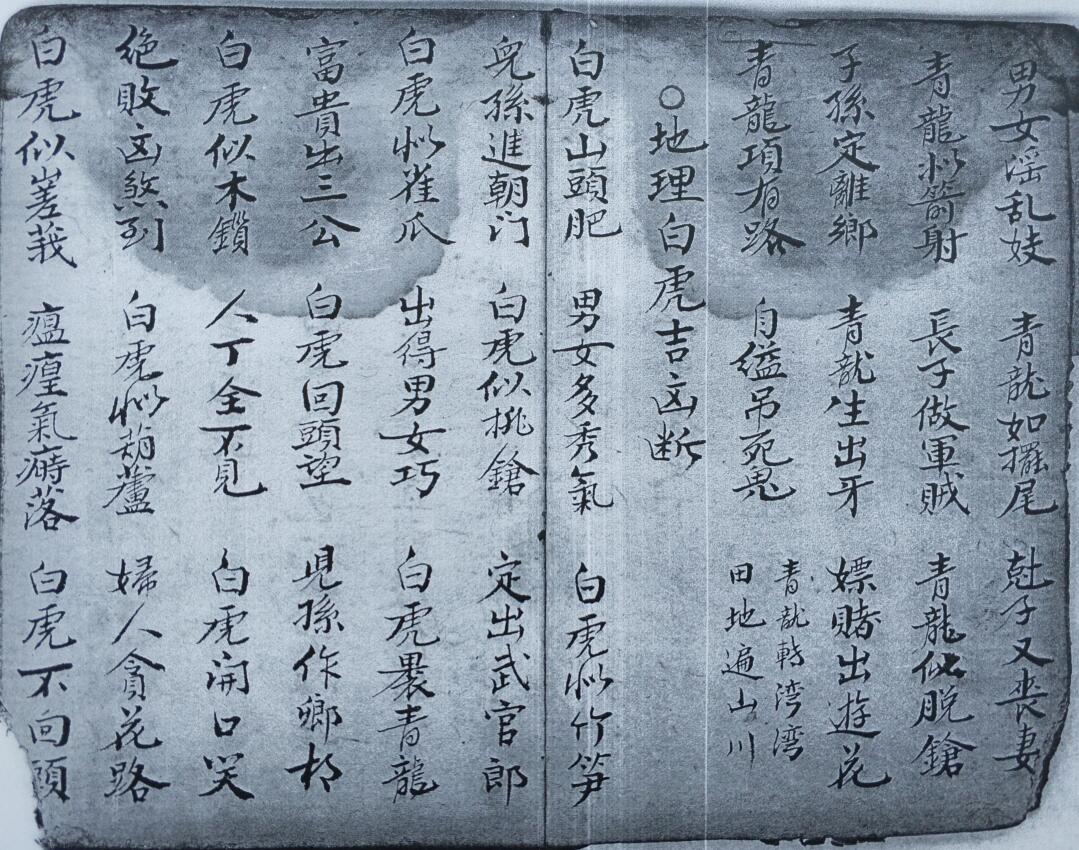 男女淫乱妓 青龍如擺尾 尅子又丧妻
青龍似箭射 長子做軍賊 青龍似脱鎗
子孫定離鄉 青龍生出牙 嫖賭出遊花
青龍項有路 自縊吊死鬼 青龍轉湾湾
田地遍山川
○地理白虎吉凶断
白虎山頭肥 男女多秀氣 白虎似竹笋
兒孫進朝门 白虎似挑鎗 定出武官郎
白虎似雀爪 出得男女巧 白虎裹青龍
富貴出三公 白虎回頭望 児孫作鄉
白虎似木鎖 人丁全不見 白虎開口笑
绝敗凶煞到 白虎似葫蘆 婦人貪花路
白虎似嵳莪 瘟瘟氣痔落 白虎不向頭